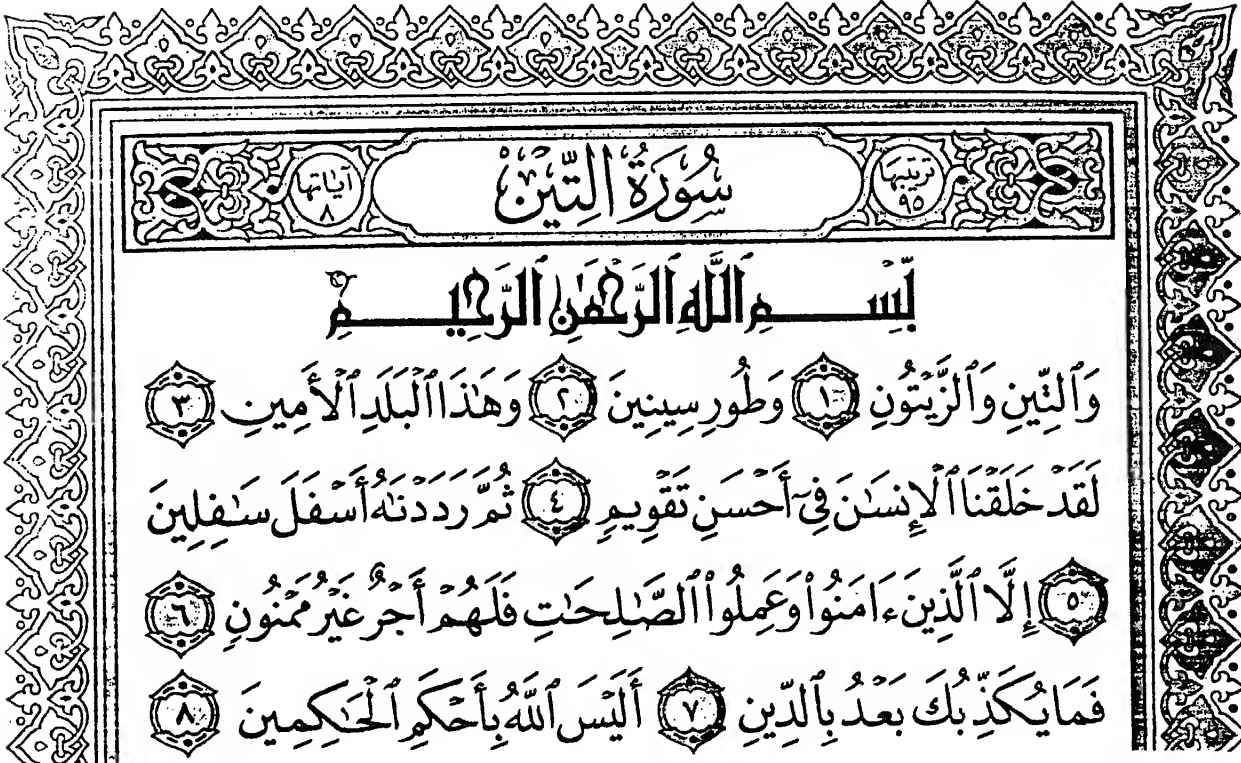 ترتيبها ٩٥
سُورَةُ التِّينِ
آياتها ٨
بِسْمِ ٱللَّهِ ٱلرَّحْمَٰنِ ٱلرَّحِيمِ
وَٱلتِّينِ وَٱلزَّيْتُونِ ١ وَطُورِ سِينِينَ ٢ وَهَٰذَا ٱلْبَلَدِ ٱلْأَمِينِ ٣
لَقَدْ خَلَقْنَا ٱلْإِنسَٰنَ فِىٓ أَحْسَنِ تَقْوِيمٍ ٤ ثُمَّ رَدَدْنَٰهُ أَسْفَلَ سَٰفِلِينَ
٥ إِلَّا ٱلَّذِينَ ءَامَنُوا۟ وَعَمِلُوا۟ ٱلصَّٰلِحَٰتِ فَلَهُمْ أَجْرٌ غَيْرُ مَمْنُونٍ ٦
فَمَا يُكَذِّبُكَ بَعْدُ بِٱلدِّينِ ٧ أَلَيْسَ ٱللَّهُ بِأَحْكَمِ ٱلْحَٰكِمِينَ ٨